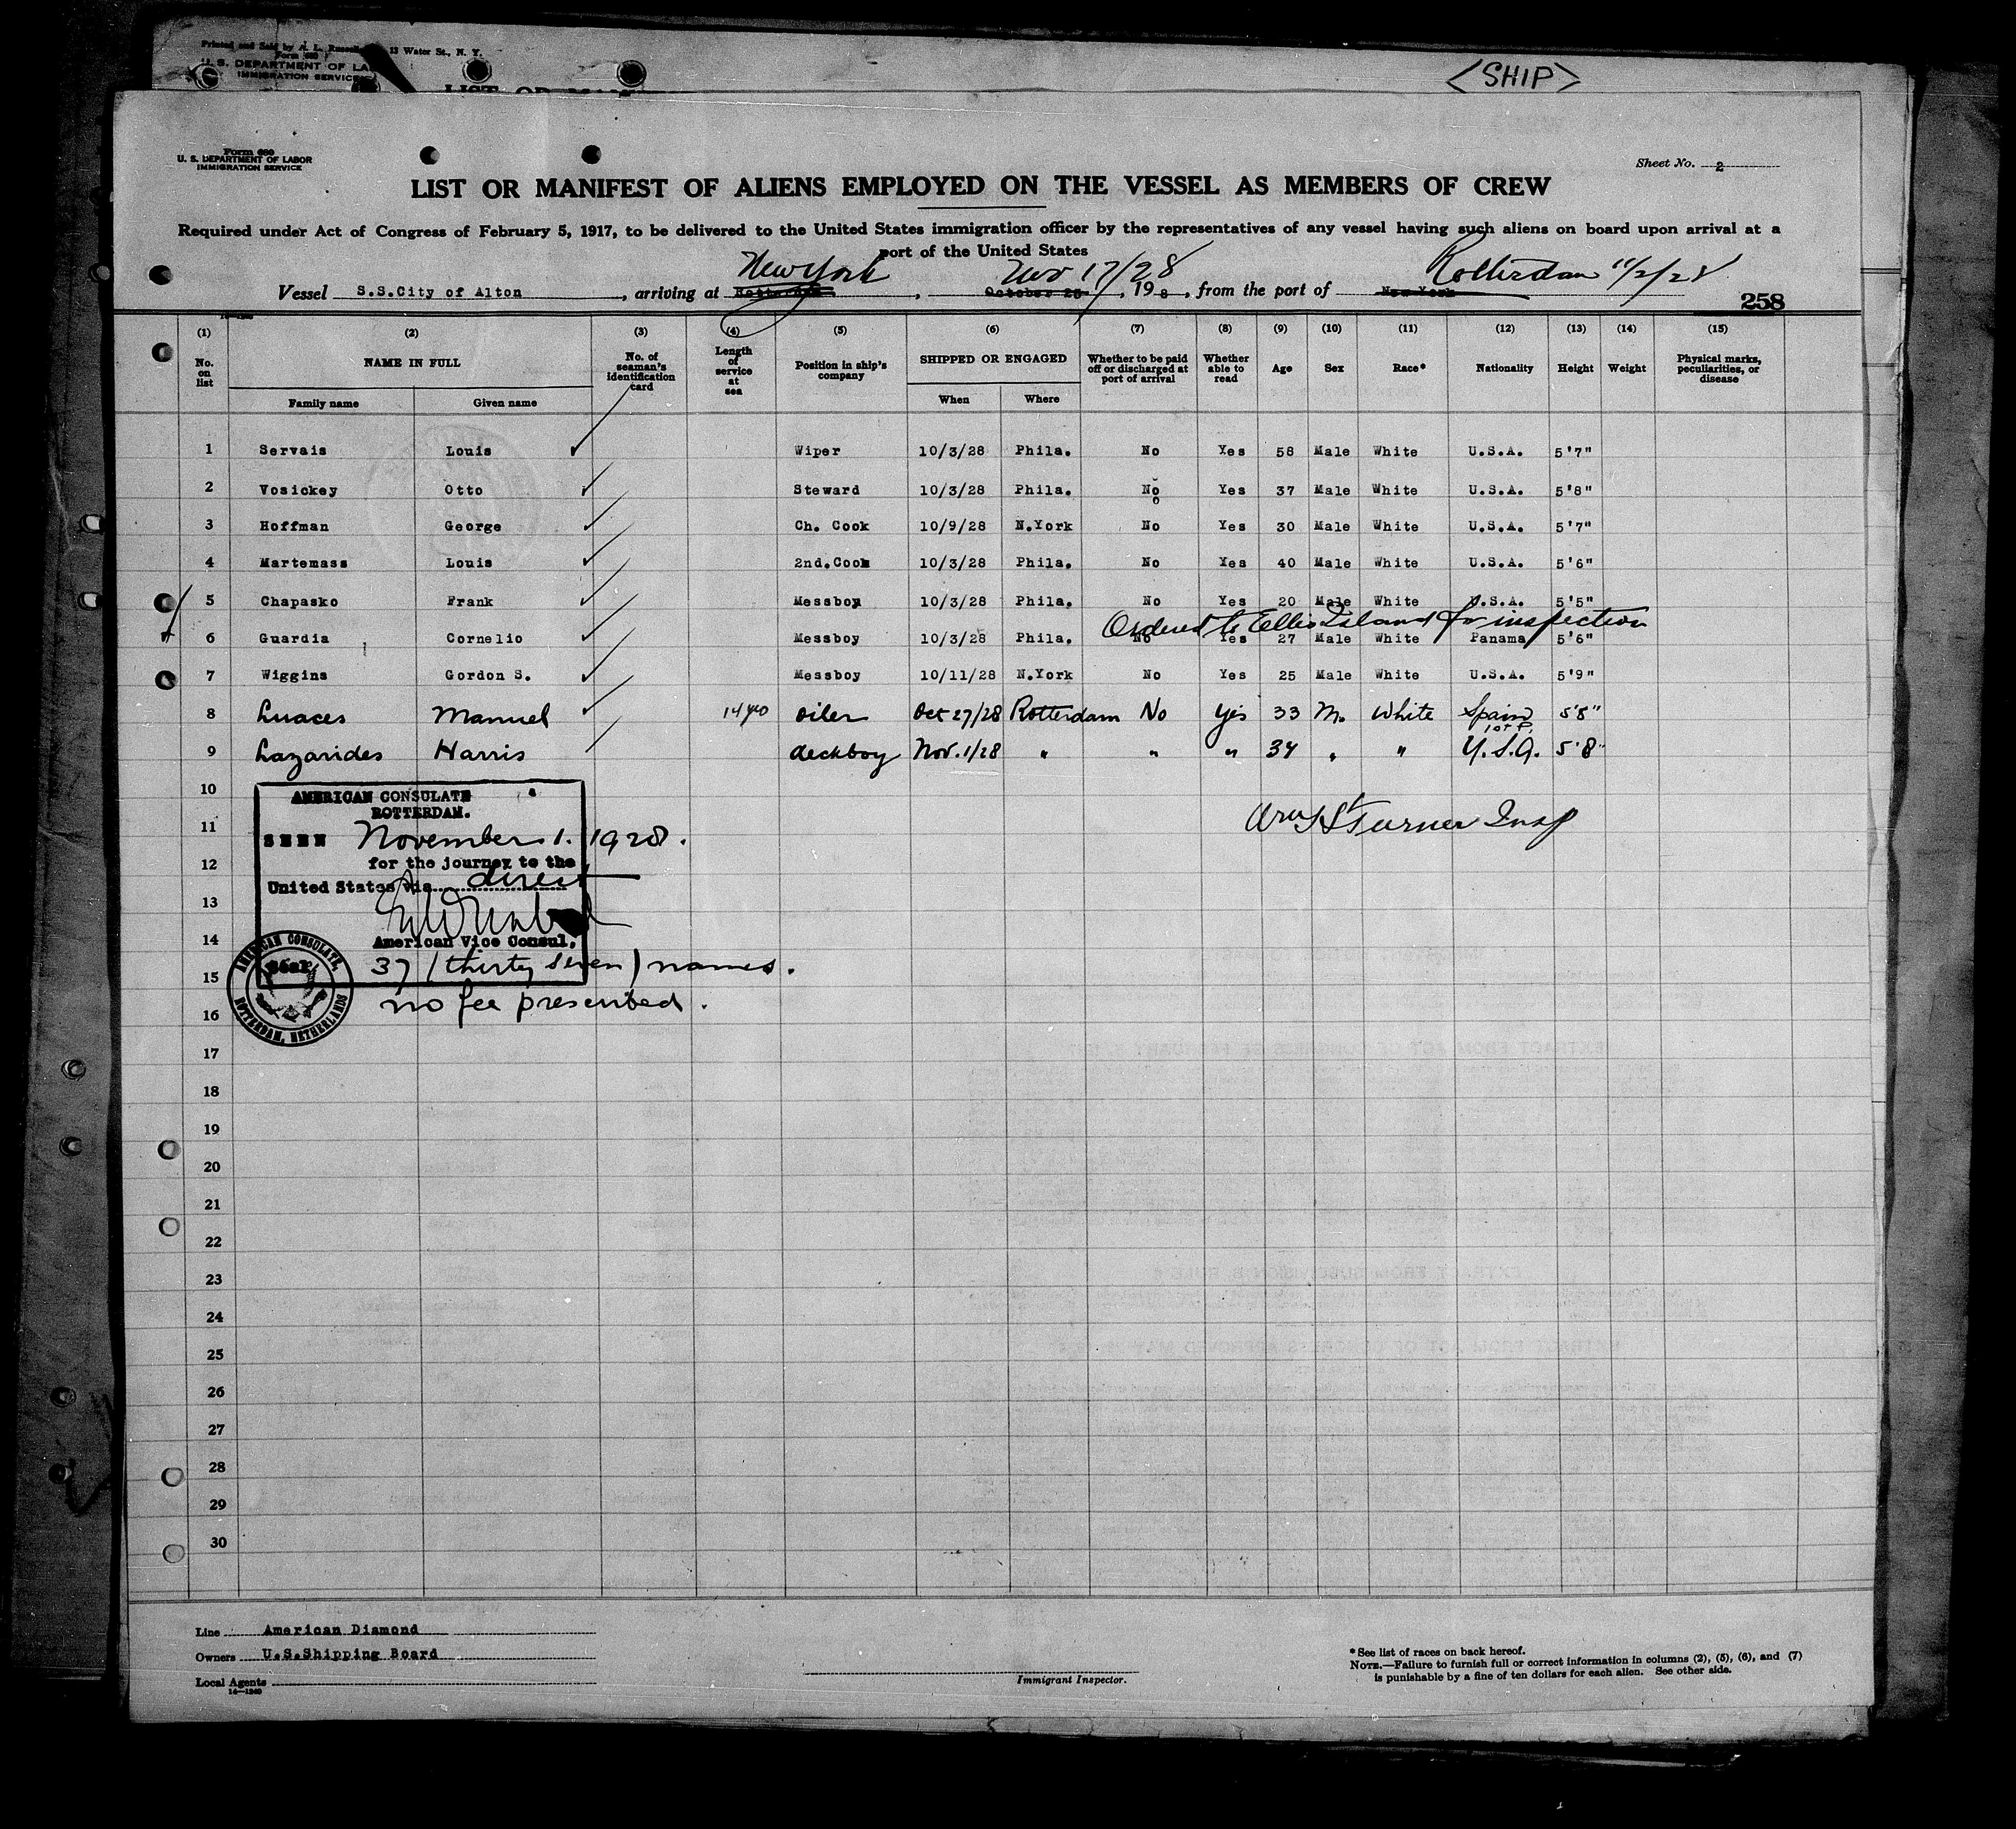 Printed and Sold by A. L. Russell 13 Water St., N. Y.
Form 680
U. S. DEPARTMENT OF LA
IMMIGRATION SERVICE
<SHIP>
Form 680
U. S. DEPARTMENT OF LABOR
IMMIGRATION SERVICE
Sheet No. 2
LIST OR MANIFEST OF ALIENS EMPLOYED ON THE VESSEL AS MEMBERS OF CREW
Required under Act of Congress of February 5, 1917, to be delivered to the United States immigration officer by the representatives of any vessel having such aliens on board upon arrival at a
port of the United States
New York Nov 17/28 Rotterdam 11/2/28
Vessel S.S.City of Alton, arriving at Rotterdam, October 25, 198, from the port of New York
258
(1) (2) (3) (4) (5) (6) (7) (8) (9) (10) (11) (12) (13) (14) (15)
No. on list NAME IN FULL No. of seaman's identification card Length of service at sea Position in ship's company SHIPPED OR ENGAGED Whether to be paid off or discharged at port of arrival Whether able to read Age Sex Race* Nationality Height Weight Physical marks, peculiarities, or disease
Family name Given name When Where
1 Servais Louis Wiper 10/3/28 Phila. No Yes 58 Male White U.S.A. 5'7"
2 Vosickey Otto Steward 10/3/28 Phila. No Yes 37 Male White U.S.A. 5'8"
3 Hoffman George Ch. Cook 10/9/28 N.York No Yes 30 Male White U.S.A. 5'7"
4 Martemass Louis 2nd.Cook 10/3/28 Phila. No Yes 40 Male White U.S.A. 5'6"
5 Chapasko Frank Messboy 10/3/28 Phila. No Yes 20 Male White U.S.A. 5'5"
Ordered to Ellis Island for inspection
6 Guardia Cornelio Messboy 10/3/28 Phila. No Yes 27 Male White Panama 5'6"
7 Wiggins Gordon S. Messboy 10/11/28 N.York No Yes 25 Male White U.S.A. 5'9"
8 Luaces Manuel 14 yrs oiler Oct 27/28 Rotterdam No Yes 33 M. White Spain 5'5"
1st P.
9 Lazarides Harris deckboy Nov. 1/28 " " " 34 " " U.S.A. 5'8"
10
AMERICAN CONSULATE
ROTTERDAM.
11
SEEN November 1. 1928.
Turner Insp
12
for the journey to the
United States via direct
13
14
American Vice Consul.
AMERICAN CONSULATE, ROTTERDAM, NETHERLANDS
Seal
15
37 (thirty seven) names.
16
no fee prescribed.
17
18
19
20
21
22
23
24
25
26
27
28
29
30
Line American Diamond
Owners U.S.Shipping Board
Local Agents
14—1240
Immigrant Inspector.
* See list of races on back hereof.
NOTE.—Failure to furnish full or correct information in columns (2), (5), (6), and (7)
is punishable by a fine of ten dollars for each alien. See other side.